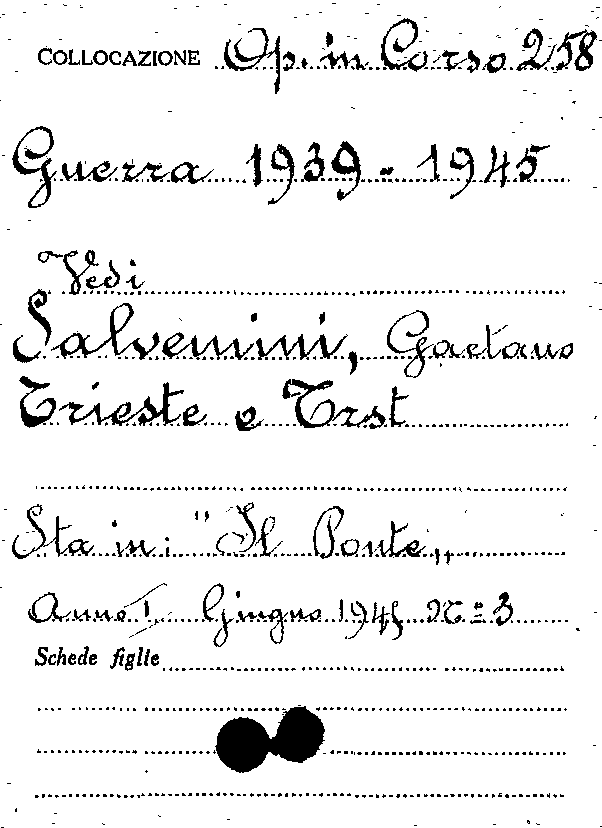 COLLOCAZIONE Op. in Corso 258
Guerra 1939 - 1945
Vedi
Salvemini, Gaetano
Trieste e Trst
Sta in: "Il Ponte„
Anno I Giugno 1945 N.º 3
Schede figlie